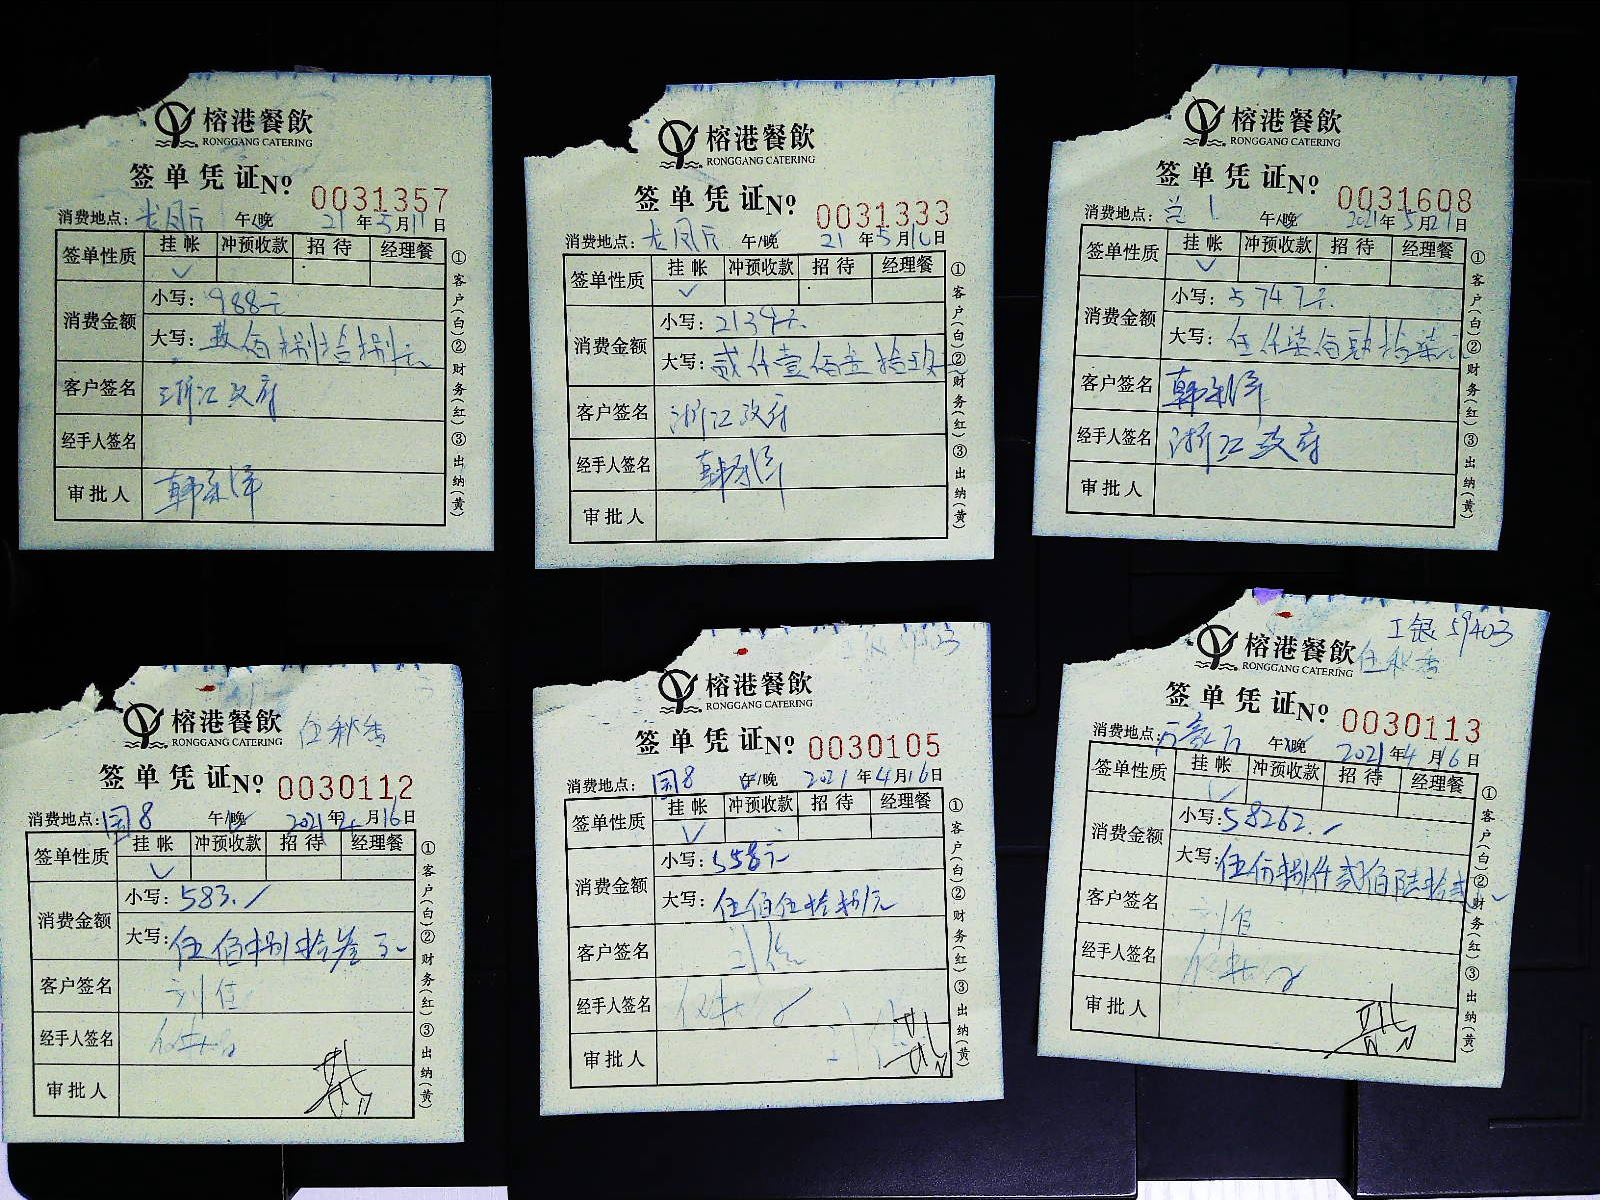 榕港餐飲
RONGGANG CATERING
签单凭证 No 0031357
消费地点: 龙凤厅 午/晚 21年5月11日
签单性质 挂帐 冲预收款 招待 经理餐
✓
消费金额
小写: 988元
大写: 佰捌拾捌元
客户签名 浙江政府
经手人签名
审批人
①客户(白)②财务(红)③出纳(黄)
榕港餐飲
RONGGANG CATERING
签单凭证 No 0031333
消费地点: 龙凤厅 午/晚 21年5月16日
签单性质 挂帐 冲预收款 招待 经理餐
✓
消费金额
小写: 2139元
大写: 贰仟壹佰 拾玖
客户签名 浙江政府
经手人签名
审批人
①客户(白)②财务(红)③出纳(黄)
榕港餐飲
RONGGANG CATERING
签单凭证 No 0031608
消费地点: 午/晚 2021年5月21日
签单性质 挂帐 冲预收款 招待 经理餐
✓
消费金额
小写: 5747元
大写: 伍仟柒佰 拾柒元
客户签名
经手人签名 浙江政府
审批人
①客户(白)②财务(红)③出纳(黄)
榕港餐飲 伍秋香
RONGGANG CATERING
签单凭证 No 0030112
消费地点: 国8 午/晚 2021年4月16日
签单性质 挂帐 冲预收款 招待 经理餐
✓
消费金额
小写: 583.
大写: 伍佰捌拾叁元
客户签名 刘佳
经手人签名
审批人
①客户(白)②财务(红)③出纳(黄)
榕港餐飲
RONGGANG CATERING
签单凭证 No 0030105
消费地点: 国8 午/晚 2021年4月16日
签单性质 挂帐 冲预收款 招待 经理餐
✓
消费金额
小写: 558元
大写: 伍佰伍拾捌元
客户签名
经手人签名
审批人
①客户(白)②财务(红)③出纳(黄)
工银 59403
榕港餐飲 伍秋香
RONGGANG CATERING
签单凭证 No 0030113
消费地点: 午/晚 2021年4月16日
签单性质 挂帐 冲预收款 招待 经理餐
✓
消费金额
小写: 58262.
大写: 伍万捌仟贰佰陆拾贰
客户签名 刘佳
经手人签名
审批人
①客户(白)②财务(红)③出纳(黄)